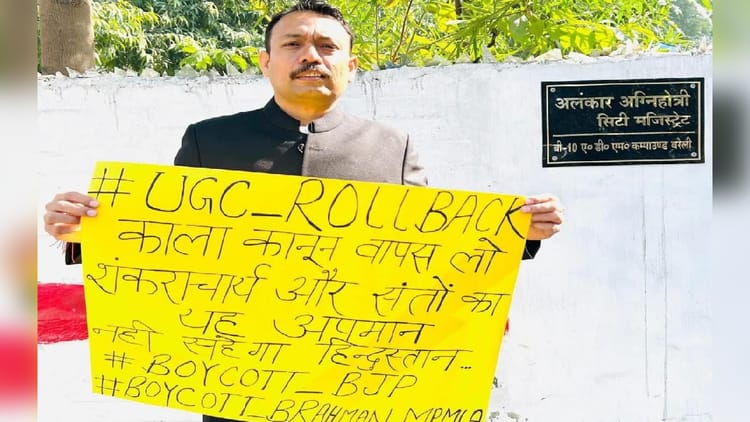 अलंकार अग्निहोत्री
सिटी मजिस्ट्रेट
बी-10 ए० डी० एम० कम्पाउण्ड बरेली
# UGC_ROLLBACK
काला कानून वापस लो
शंकराचार्य और संतों का
यह अपमान
नही सहेगा हिन्दुस्तान...
# BOYCOTT_BJP
#BOYCOTT_BRAHMAN_MPMLA